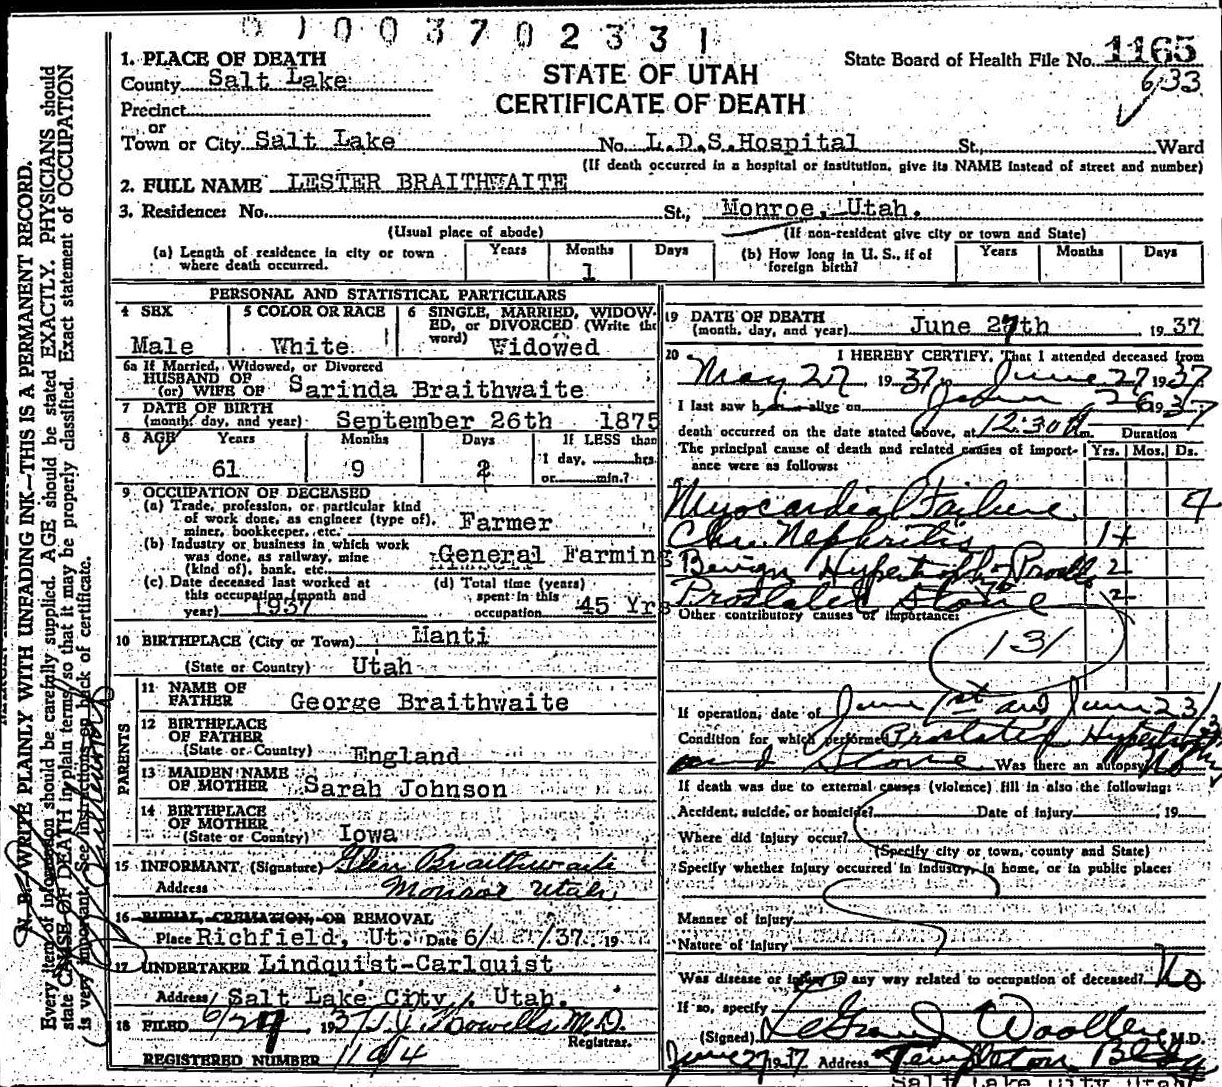 01003702331
State Board of Health File No. 1165
633
STATE OF UTAH
CERTIFICATE OF DEATH
1. PLACE OF DEATH
County Salt Lake
Precinct
or
Town or City Salt Lake No. L.D.S.Hospital St., Ward
(If death occurred in a hospital or institution, give its NAME instead of street and number)
2. FULL NAME LESTER BRAITHWAITE
3. Residence: No. St., Monroe, Utah.
(Usual place of abode) (If non-resident give city or town and State)
(a) Length of residence in city or town where death occurred. Years Months 1 Days
(b) How long in U. S., if of foreign birth? Years Months Days
PERSONAL AND STATISTICAL PARTICULARS
4 SEX Male
5 COLOR OR RACE White
6 SINGLE, MARRIED, WIDOWED, or DIVORCED (Write the word) Widowed
6a If Married, Widowed, or Divorced
HUSBAND OF
(or) WIFE OF Sarinda Braithwaite
7 DATE OF BIRTH
(month, day, and year) September 26th 1875
8 AGE Years 61 Months 9 Days 2
If LESS than
1 day, hrs.
or min.?
9 OCCUPATION OF DECEASED
(a) Trade, profession, or particular kind
of work done, as engineer (type of),
miner, bookkeeper, etc. Farmer
(b) Industry or business in which work
was done, as railway, mine
(kind of), bank, etc. General Farming
(c) Date deceased last worked at
this occupation (month and
year) 1937
(d) Total time (years)
spent in this
occupation 45 Yrs
10 BIRTHPLACE (City or Town) Manti
(State or Country) Utah
PARENTS
11 NAME OF
FATHER George Braithwaite
12 BIRTHPLACE
OF FATHER
(State or Country) England
13 MAIDEN NAME
OF MOTHER Sarah Johnson
14 BIRTHPLACE
OF MOTHER
(State or Country) Iowa
15 INFORMANT (Signature) Glen Braithwaite
Address Monroe Utah
16 BURIAL, CREMATION, OR REMOVAL
Place Richfield, Ut. Date 6/ /37, 19
17 UNDERTAKER Lindquist-Carlquist
Address Salt Lake City, Utah.
18 FILED 6/27 1937 M.D.
Registrar.
REGISTERED NUMBER 1194
19 DATE OF DEATH
(month, day, and year) June 27th 1937
20 I HEREBY CERTIFY, That I attended deceased from
May 27 1937, June 27 1937
I last saw h alive on June 26 1937
death occurred on the date stated above, at 12:30 A m. Duration
The principal cause of death and related causes of importance were as follows: Yrs. Mos. Ds.
Myocardial Failure 4
Chr. Nephritis 1+
Benign Hypertrophy 2
Prostatic Stone 2
Other contributory causes of importance:
131
If operation, date of June 1st and June 23/37
Condition for which performed Prostatic Hypertrophy
and Stone Was there an autopsy No
If death was due to external causes (violence) fill in also the following:
Accident, suicide, or homicide? Date of injury , 19
Where did injury occur?
(Specify city or town, county and State)
Specify whether injury occurred in industry, in home, or in public place:
Manner of injury
Nature of injury
Was disease or injury in any way related to occupation of deceased? No
If so, specify
(Signed) LeGrand Woolley M.D.
June 27 1937 Address Templeton Bldg
Salt Lake City Utah
N. B.—WRITE PLAINLY WITH UNFADING INK—THIS IS A PERMANENT RECORD.
Every item of information should be carefully supplied. AGE should be stated EXACTLY. PHYSICIANS should
state CAUSE OF DEATH in plain terms, so that it may be properly classified. Exact statement of OCCUPATION
is very important. See instructions on back of certificate.